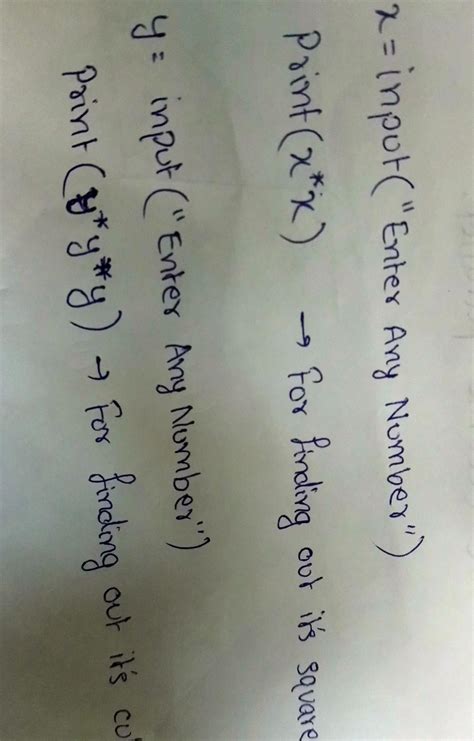 x = input("Enter Any Number")
print(x*x) → For finding out it's square
y = input("Enter Any Number")
print(y*y*y) → For finding out it's